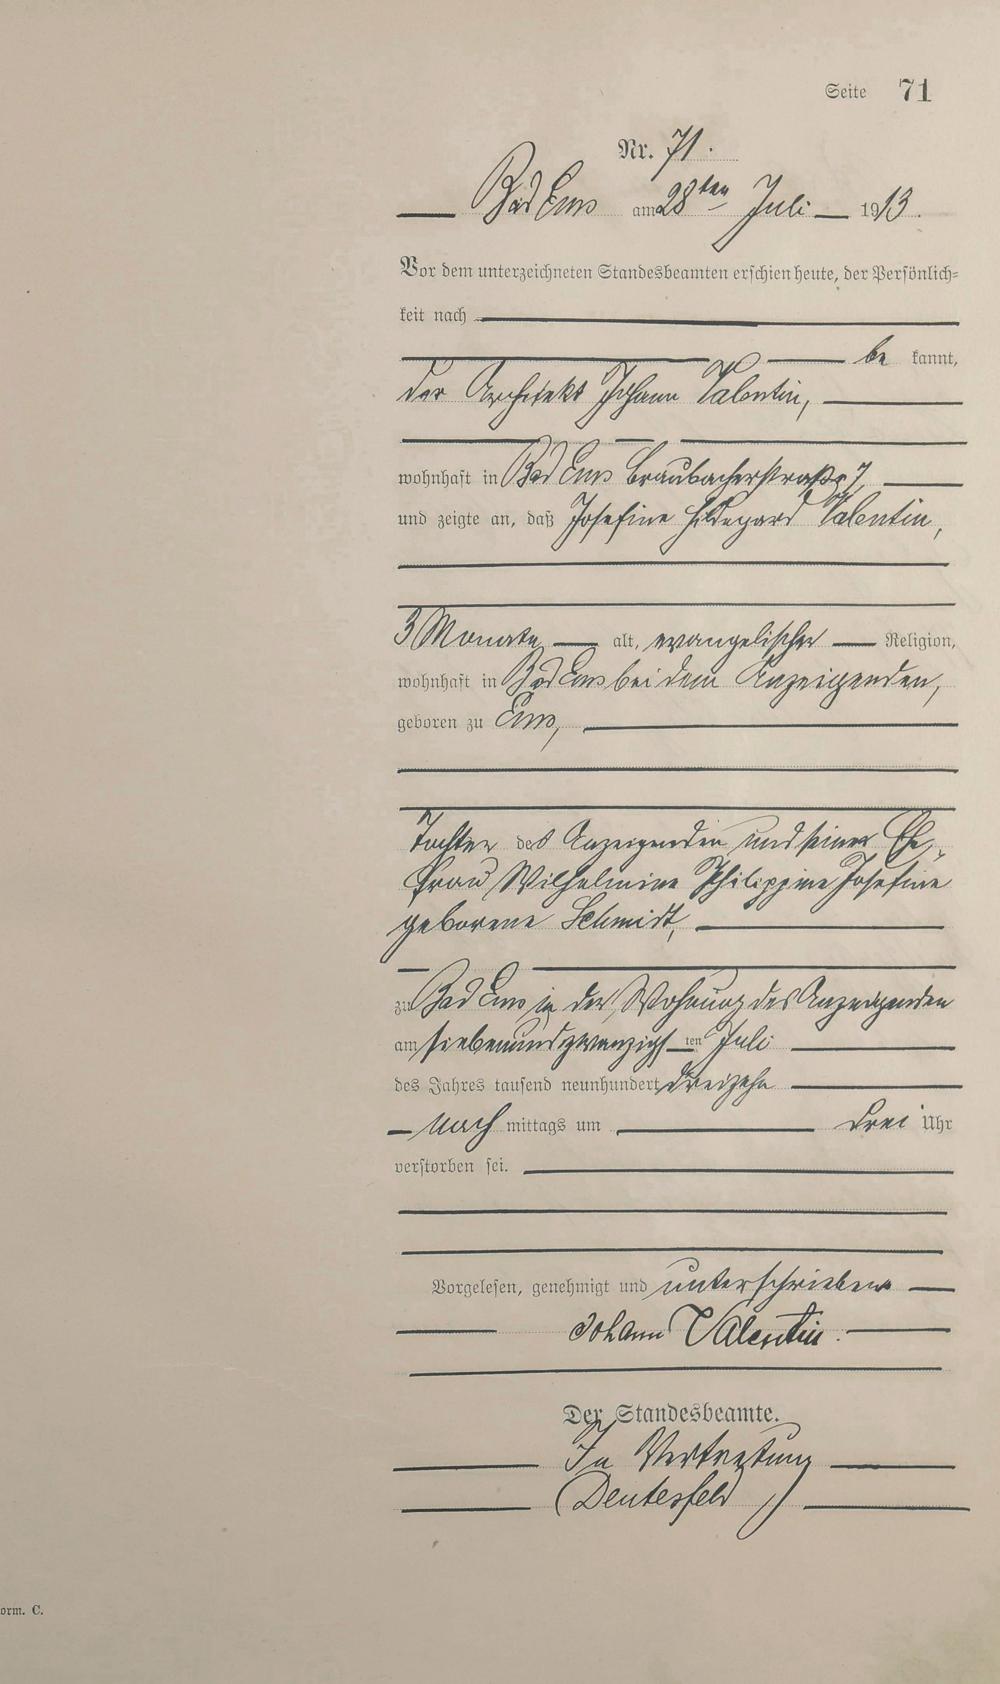 Seite 71
Nr. 71.
Bad Ems am 28ten Juli 1913.
Vor dem unterzeichneten Standesbeamten erschien heute, der Persönlich=
keit nach
be kannt,
der Architekt Johann Valentin,
wohnhaft in Bad Ems Braubacherstraße 7
und zeigte an, daß Josefine Hildegard Valentin,
3 Monate alt, evangelischer Religion,
wohnhaft in Bad Ems bei dem Anzeigenden,
geboren zu Ems,
Tochter des Anzeigenden und seiner Ehe-
frau Wilhelmine Philippine Josefine
geborene Schmidt,
zu Bad Ems in der Wohnung des Anzeigenden
am siebenundzwanzigsten Juli
des Jahres tausend neunhundert dreizehn
nach mittags um drei Uhr
verstorben sei.
Vorgelesen, genehmigt und unterschrieben
Johann Valentin.
Der Standesbeamte.
In Vertretung
orm. C.